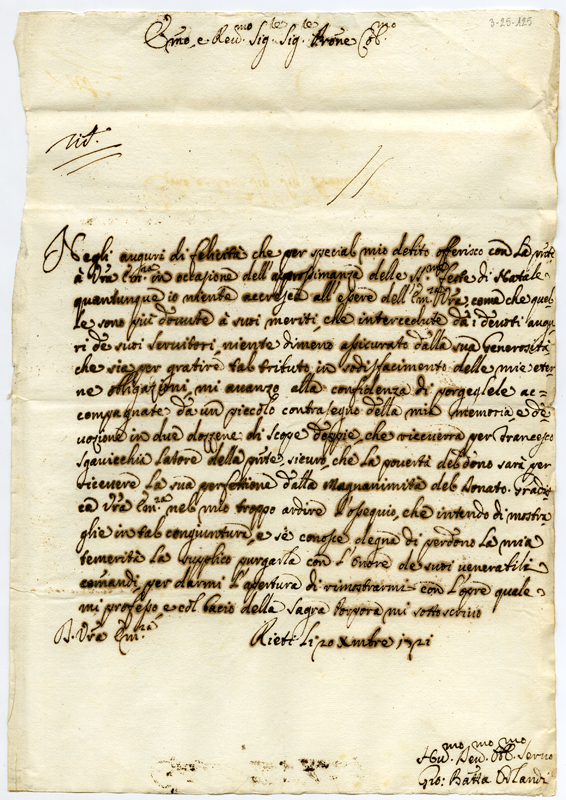 3-25-125
Emo, e Reu.mo Sig.re Sig.re Prone Col.mo
rid.
Negli auguri di felicità che per special mio debito offerisco con la pnte
à Vra Em.za in occasione dell'approssimanza delle S.me feste di Natale
quantunque io niente accresca all'essere dell'Em.za Vra, come che quel=
le sono più douute à suoi meriti, che intercedute dà i deuoti augu
ri de suoi seruitori, niente dimeno assicurato dalla sua Generosità
che sia per gratire tal tributo in sodisfacimento delle mie eter=
ne obligazioni, mi auanzo alla confidenza di porgeglele ac=
compagnate dà un piccolo contrasegno della mia memoria, e de=
uozione in due dozzene di Scope doppie, che riceuerà per Francesco
Sgauicchia latore della pnte, sicuro, che la pouertà del dono sarà per
riceuere la sua perfettione dalla Magnanimità del Donato. Gradis
ca Vra Em.za nel mio troppo ardire l'ossequio, che intendo di mostra
glie in tal congiuntura, e se conosce degna di perdono la mia
temerità la supplico purgarla con l'onore de suoi venerabili
comandi, per darmi l'apertura di rimostrarmi con l'opre quale
mi professo e col bacio della Sagra Porpora mi sottoscriuo
D. Vra Em.za Rieti li 20 Xmbre 1721
Hu.mo Deu.mo Obl.mo Seruo
Gio: Batta Orlandi